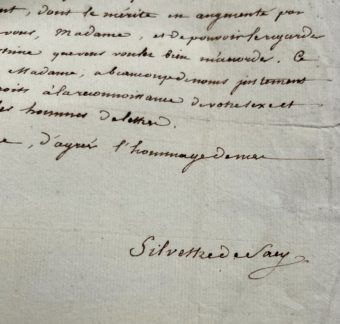 nt, dont le mérite en augmente par
vous, Madame, et de pouvoir le regarder
estime que vous voulez bien m'accorder. Ce
Madame, a beaucoup de nous justement
oits à la reconnoissance de votre sexe et
les hommes de lettre.
e, d'agréer l'hommage de mes
Silvestre de Sacy